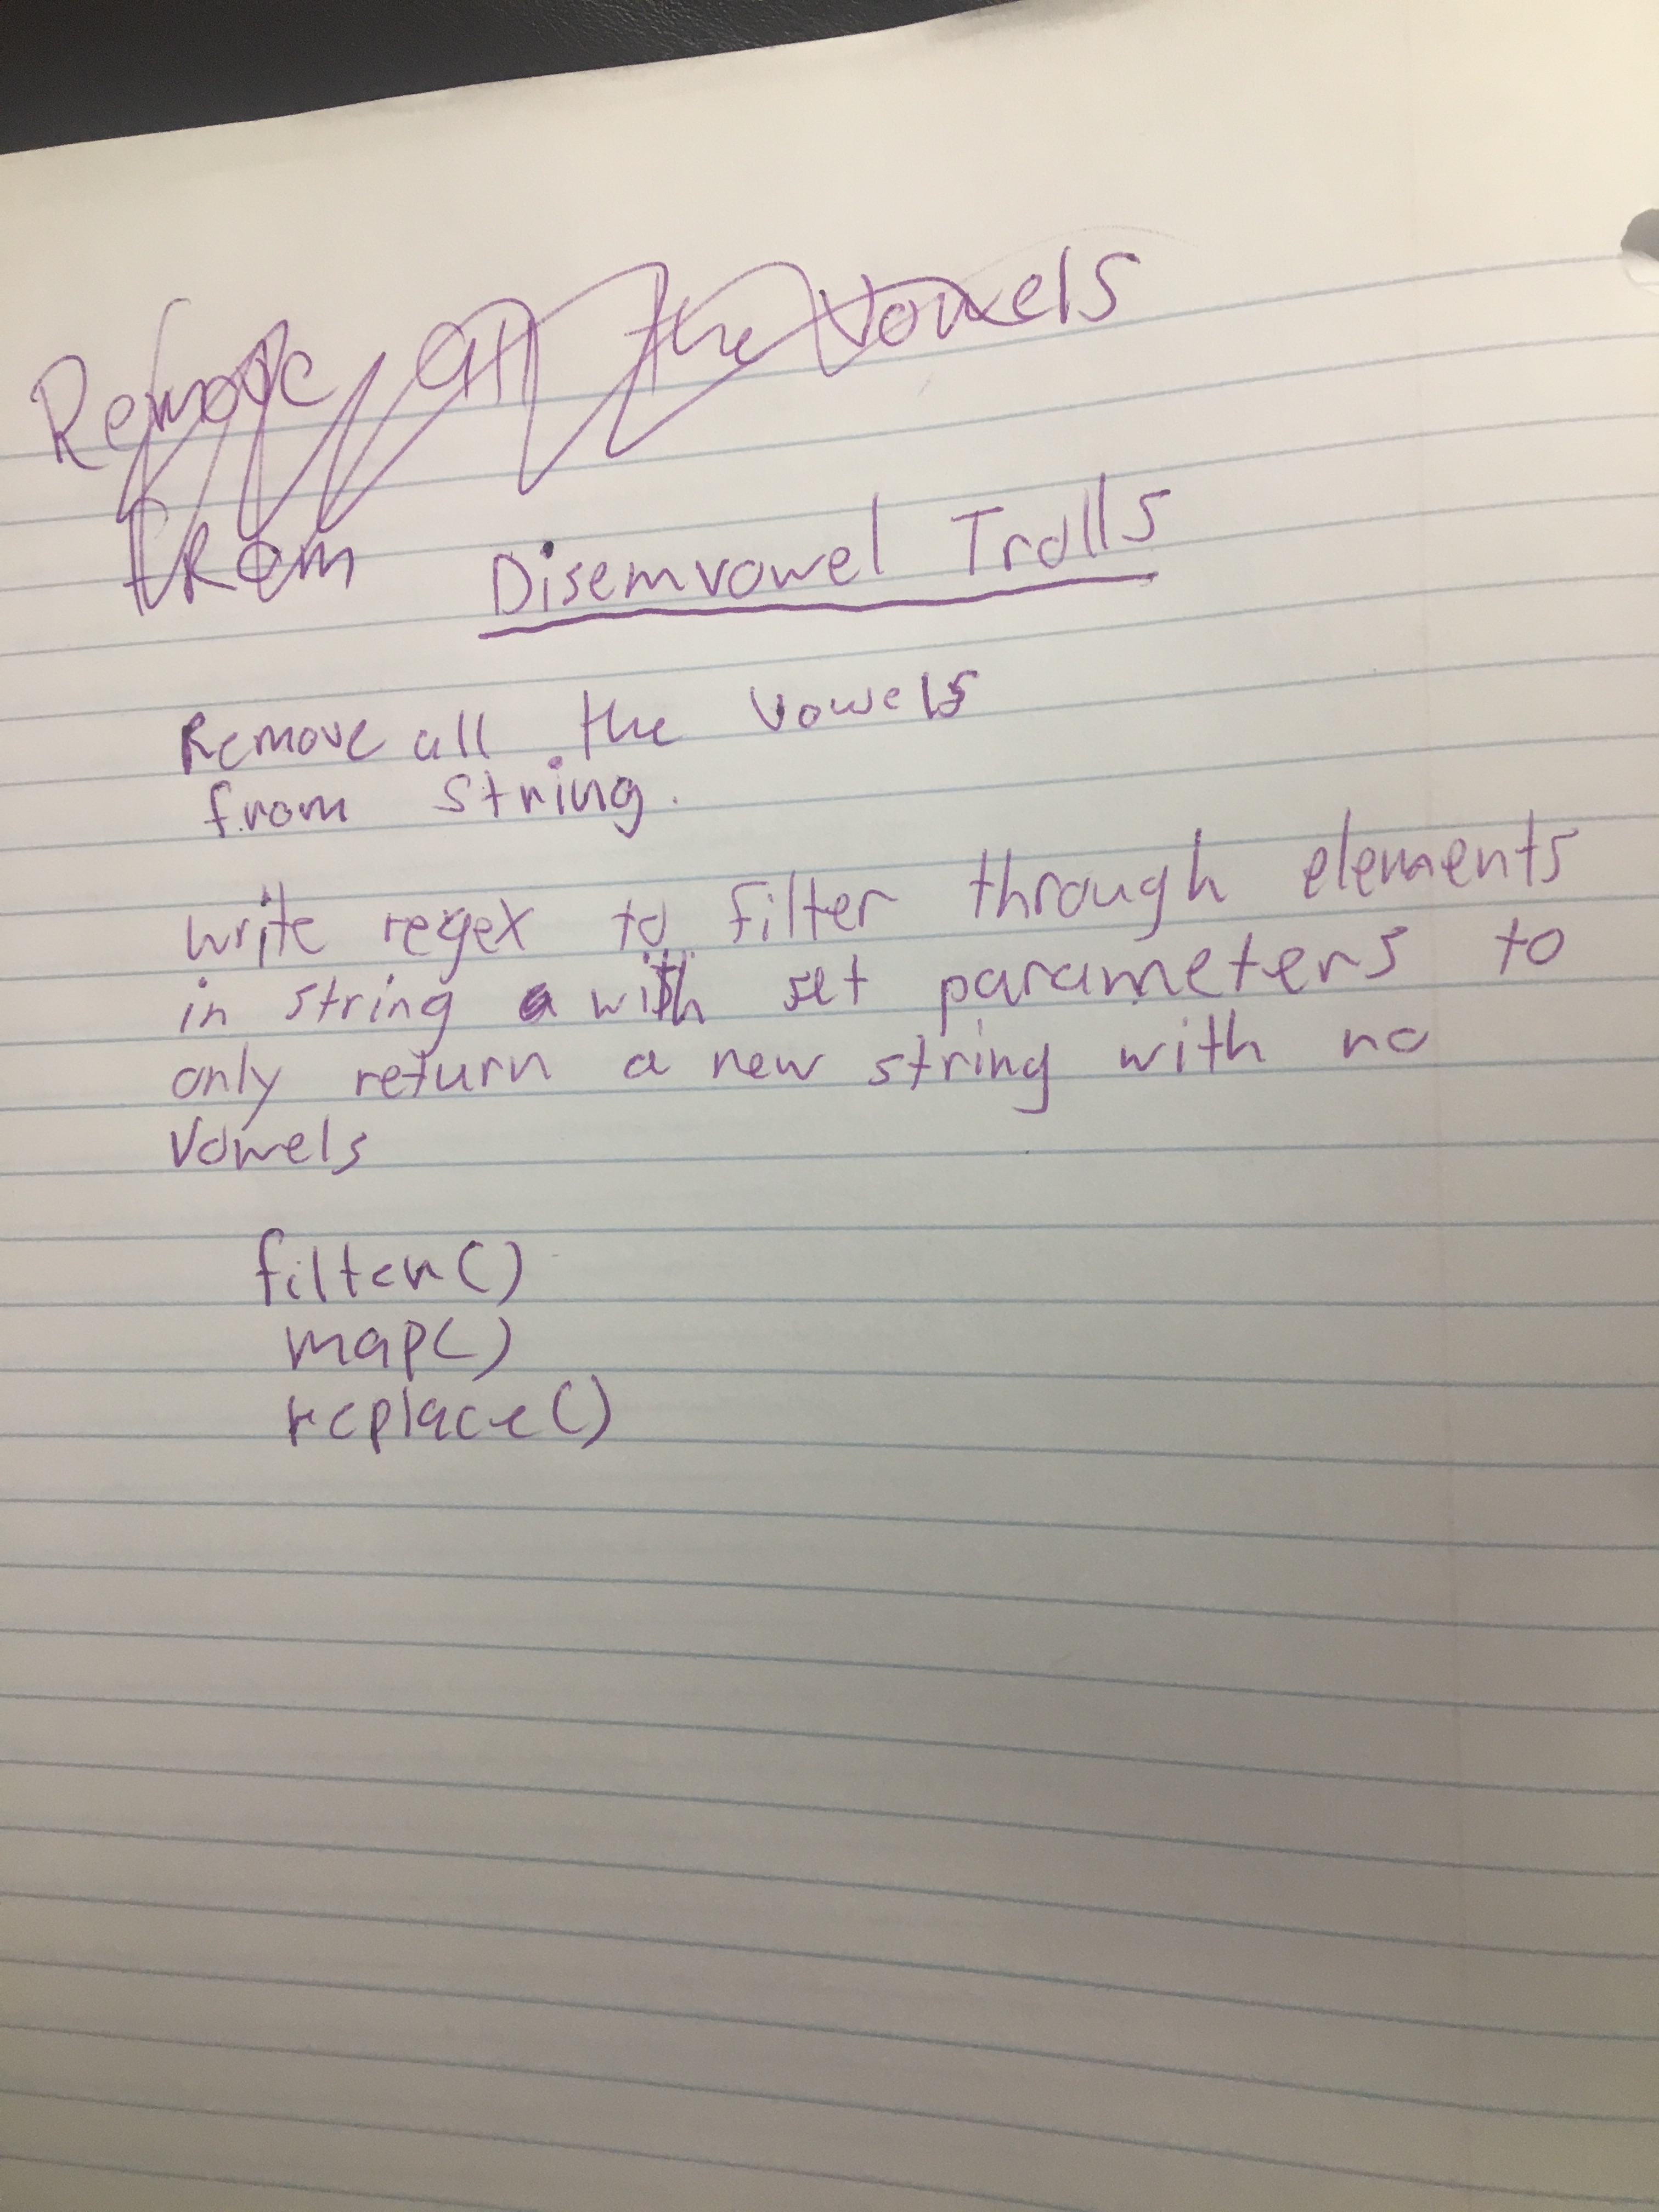 Remove all the Vowels
from
Disemvowel Trolls
Remove all the vowels
from string.
write regex to filter through elements
in string a with set parameters to
only return a new string with no
Vowels
filter()
map()
replace()